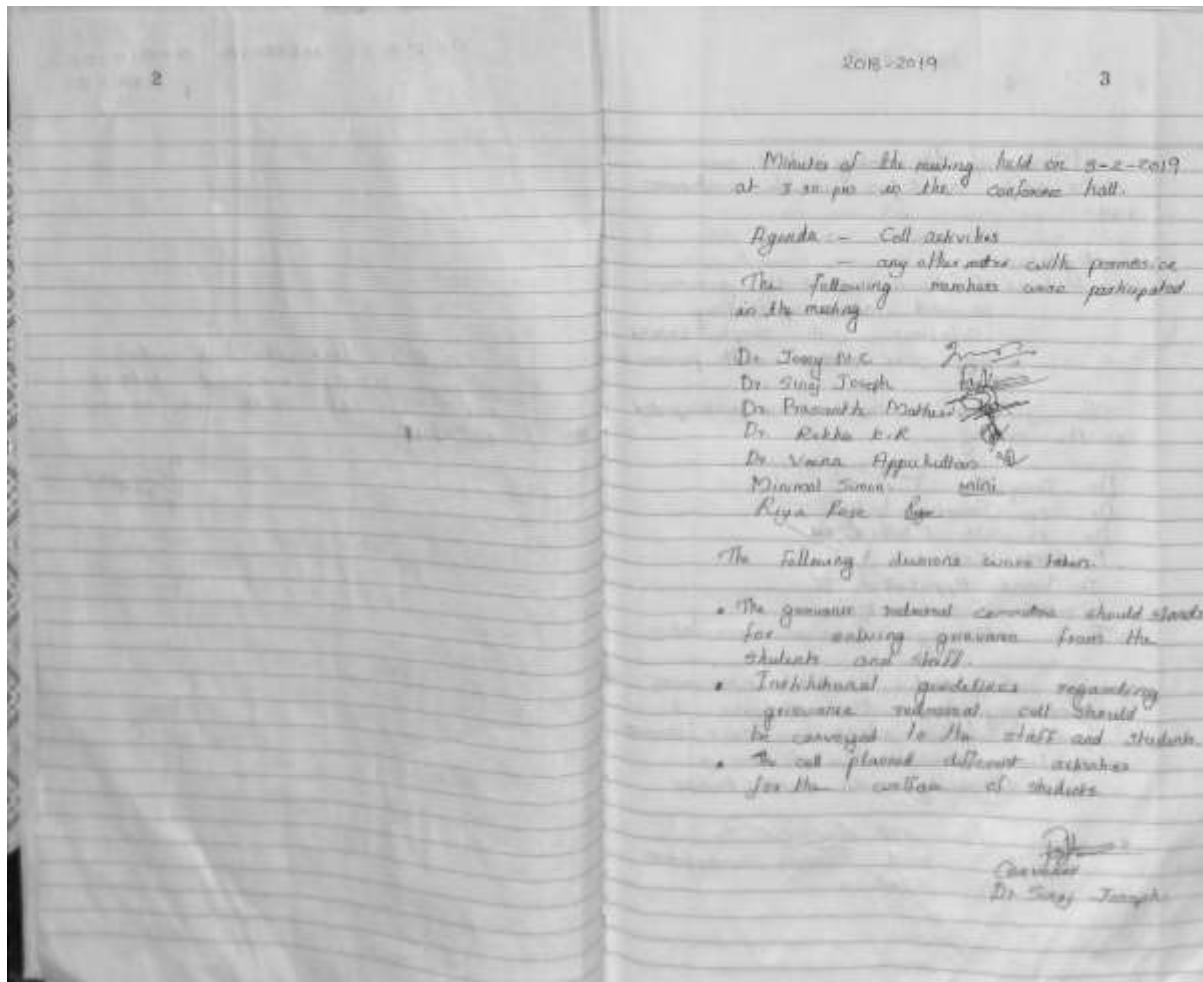 2
2018-2019
3
Minutes of the meeting held on 5-2-2019
at 3 30 pm in the conference hall.
Agenda :- Cell activities
- any other matter with permission
The following members were participated
in the meeting
Dr. Josey M.C
Dr. Siraj Joseph
Dr. Prasanth Mathew
Dr. Rekha K.R
Dr. Veena Appukuttan
Minimol Simon mini
Riya Rose Riya
The following decisions were taken.
• The grievance redressal committee should stands
for solving grievance from the
students and staff.
• Institutional guidelines regarding
grievance redressal cell should
be conveyed to the staff and students
• The cell planned different activities
for the welfare of students
Convenor
Dr Siraj Joseph